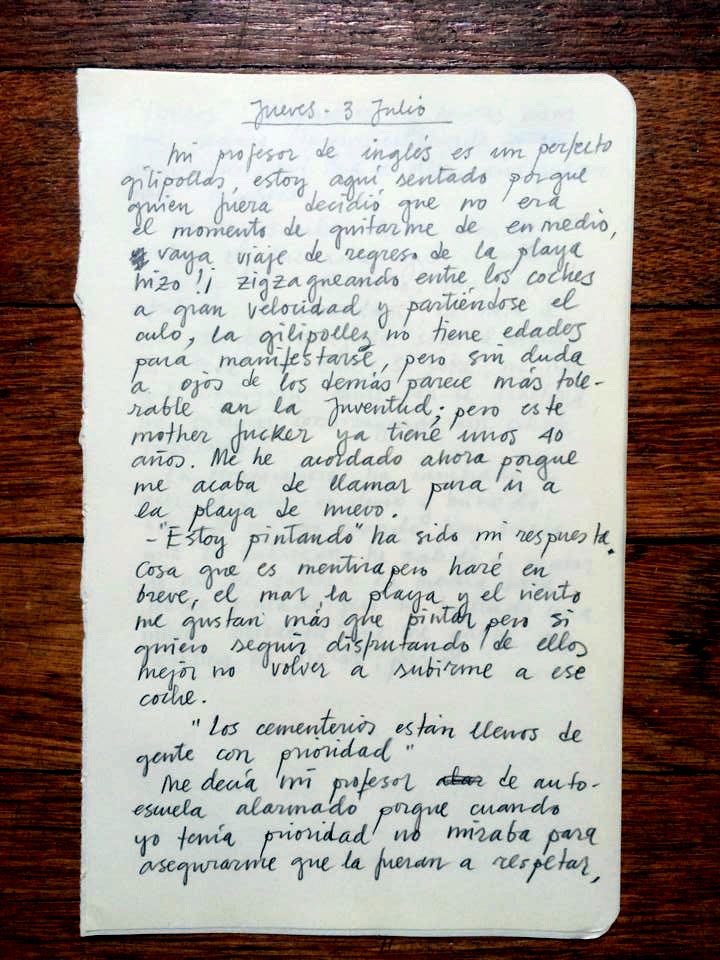 Jueves - 3 Julio
Mi profesor de inglés es un perfecto
gilipollas, estoy aquí sentado porque
quien fuera decidió que no era
el momento de quitarme de en medio,
vaya viaje de regreso de la playa
hizo!¡ zigzagueando entre los coches
a gran velocidad y partiéndose el
culo, la gilipollez no tiene edades
para manifestarse, pero sin duda
a ojos de los demás parece más tole-
rable an la juventud; pero este
mother fucker ya tiene unos 40
años. Me he acordado ahora porque
me acaba de llamar para ir a
la playa de nuevo.
-"Estoy pintando" ha sido mi respuesta.
Cosa que es mentira pero haré en
breve, el mar, la playa y el viento
me gustan más que pintar pero si
quiero seguir disfrutando de ellos
mejor no volver a subirme a ese
coche.
"Los cementerios están llenos de
gente con prioridad"
Me decía mi profesor de auto-
escuela alarmado porque cuando
yo tenía prioridad no miraba para
asegurarme que la fueran a respetar,